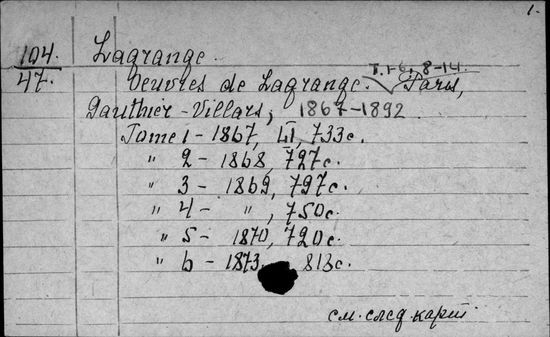 1.
104. Lagrange
47. Oeuvres de Lagrange. T. 1-6, 8-14. Paris,
Gauthier-Villars, 1867-1892
Tome 1 - 1867, LI, 733c.
" 2 - 1868, 727c.
" 3 - 1869, 797c.
" 4 - ", 750c.
" 5 - 1870, 720c.
" 6 - 1873. 813c.
см. след. карт